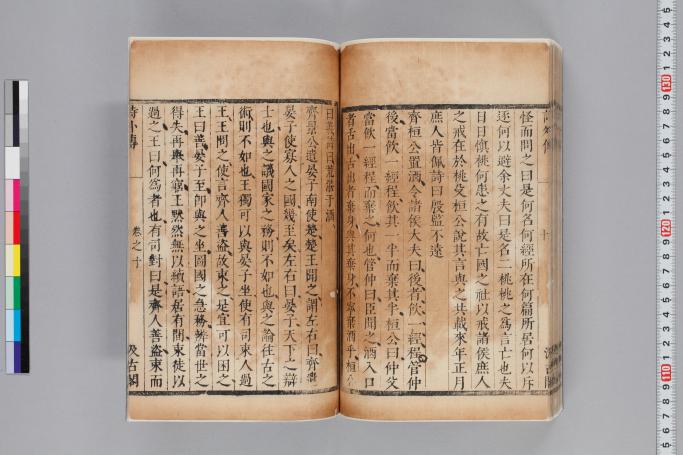 怪而問之曰是何名何經所在何篇所居何以斥
逐何以避余丈夫曰是名二桃桃之為言亡也夫
日日慎桃何患之有故亡國之社以戒諸侯庶人
之戒在於桃殳桓公說其言與之共載來年正月
庶人皆佩詩曰殷監不遠
齊桓公置酒令諸侯大夫曰後者飲一經程管仲
後當飲一經程飲其一半而棄其半桓公曰仲父
當飲一經程而棄之何也管仲曰臣聞之酒入口
者舌出舌出者棄身與其棄身不寧棄酒乎桓公
曰善詩曰荒湛于酒
齊景公遣晏子南使楚楚王聞之謂左右曰齊遣
晏子使寡人之國幾至矣左右曰晏子天下之辯
士也與之議國家之務則不如也與之論往古之
術則不如也王獨可以與晏子坐使有司束人過
王王問之使言齊人善盜故束之是宜可以困之
王曰善晏子至即與之坐圖國之急務辨當世之
得失再舉再窮王默然無以續語居有間束徒以
過之王曰何為者也有司對曰是齊人善盜束而
詩外傳
卷之十
汲古閣